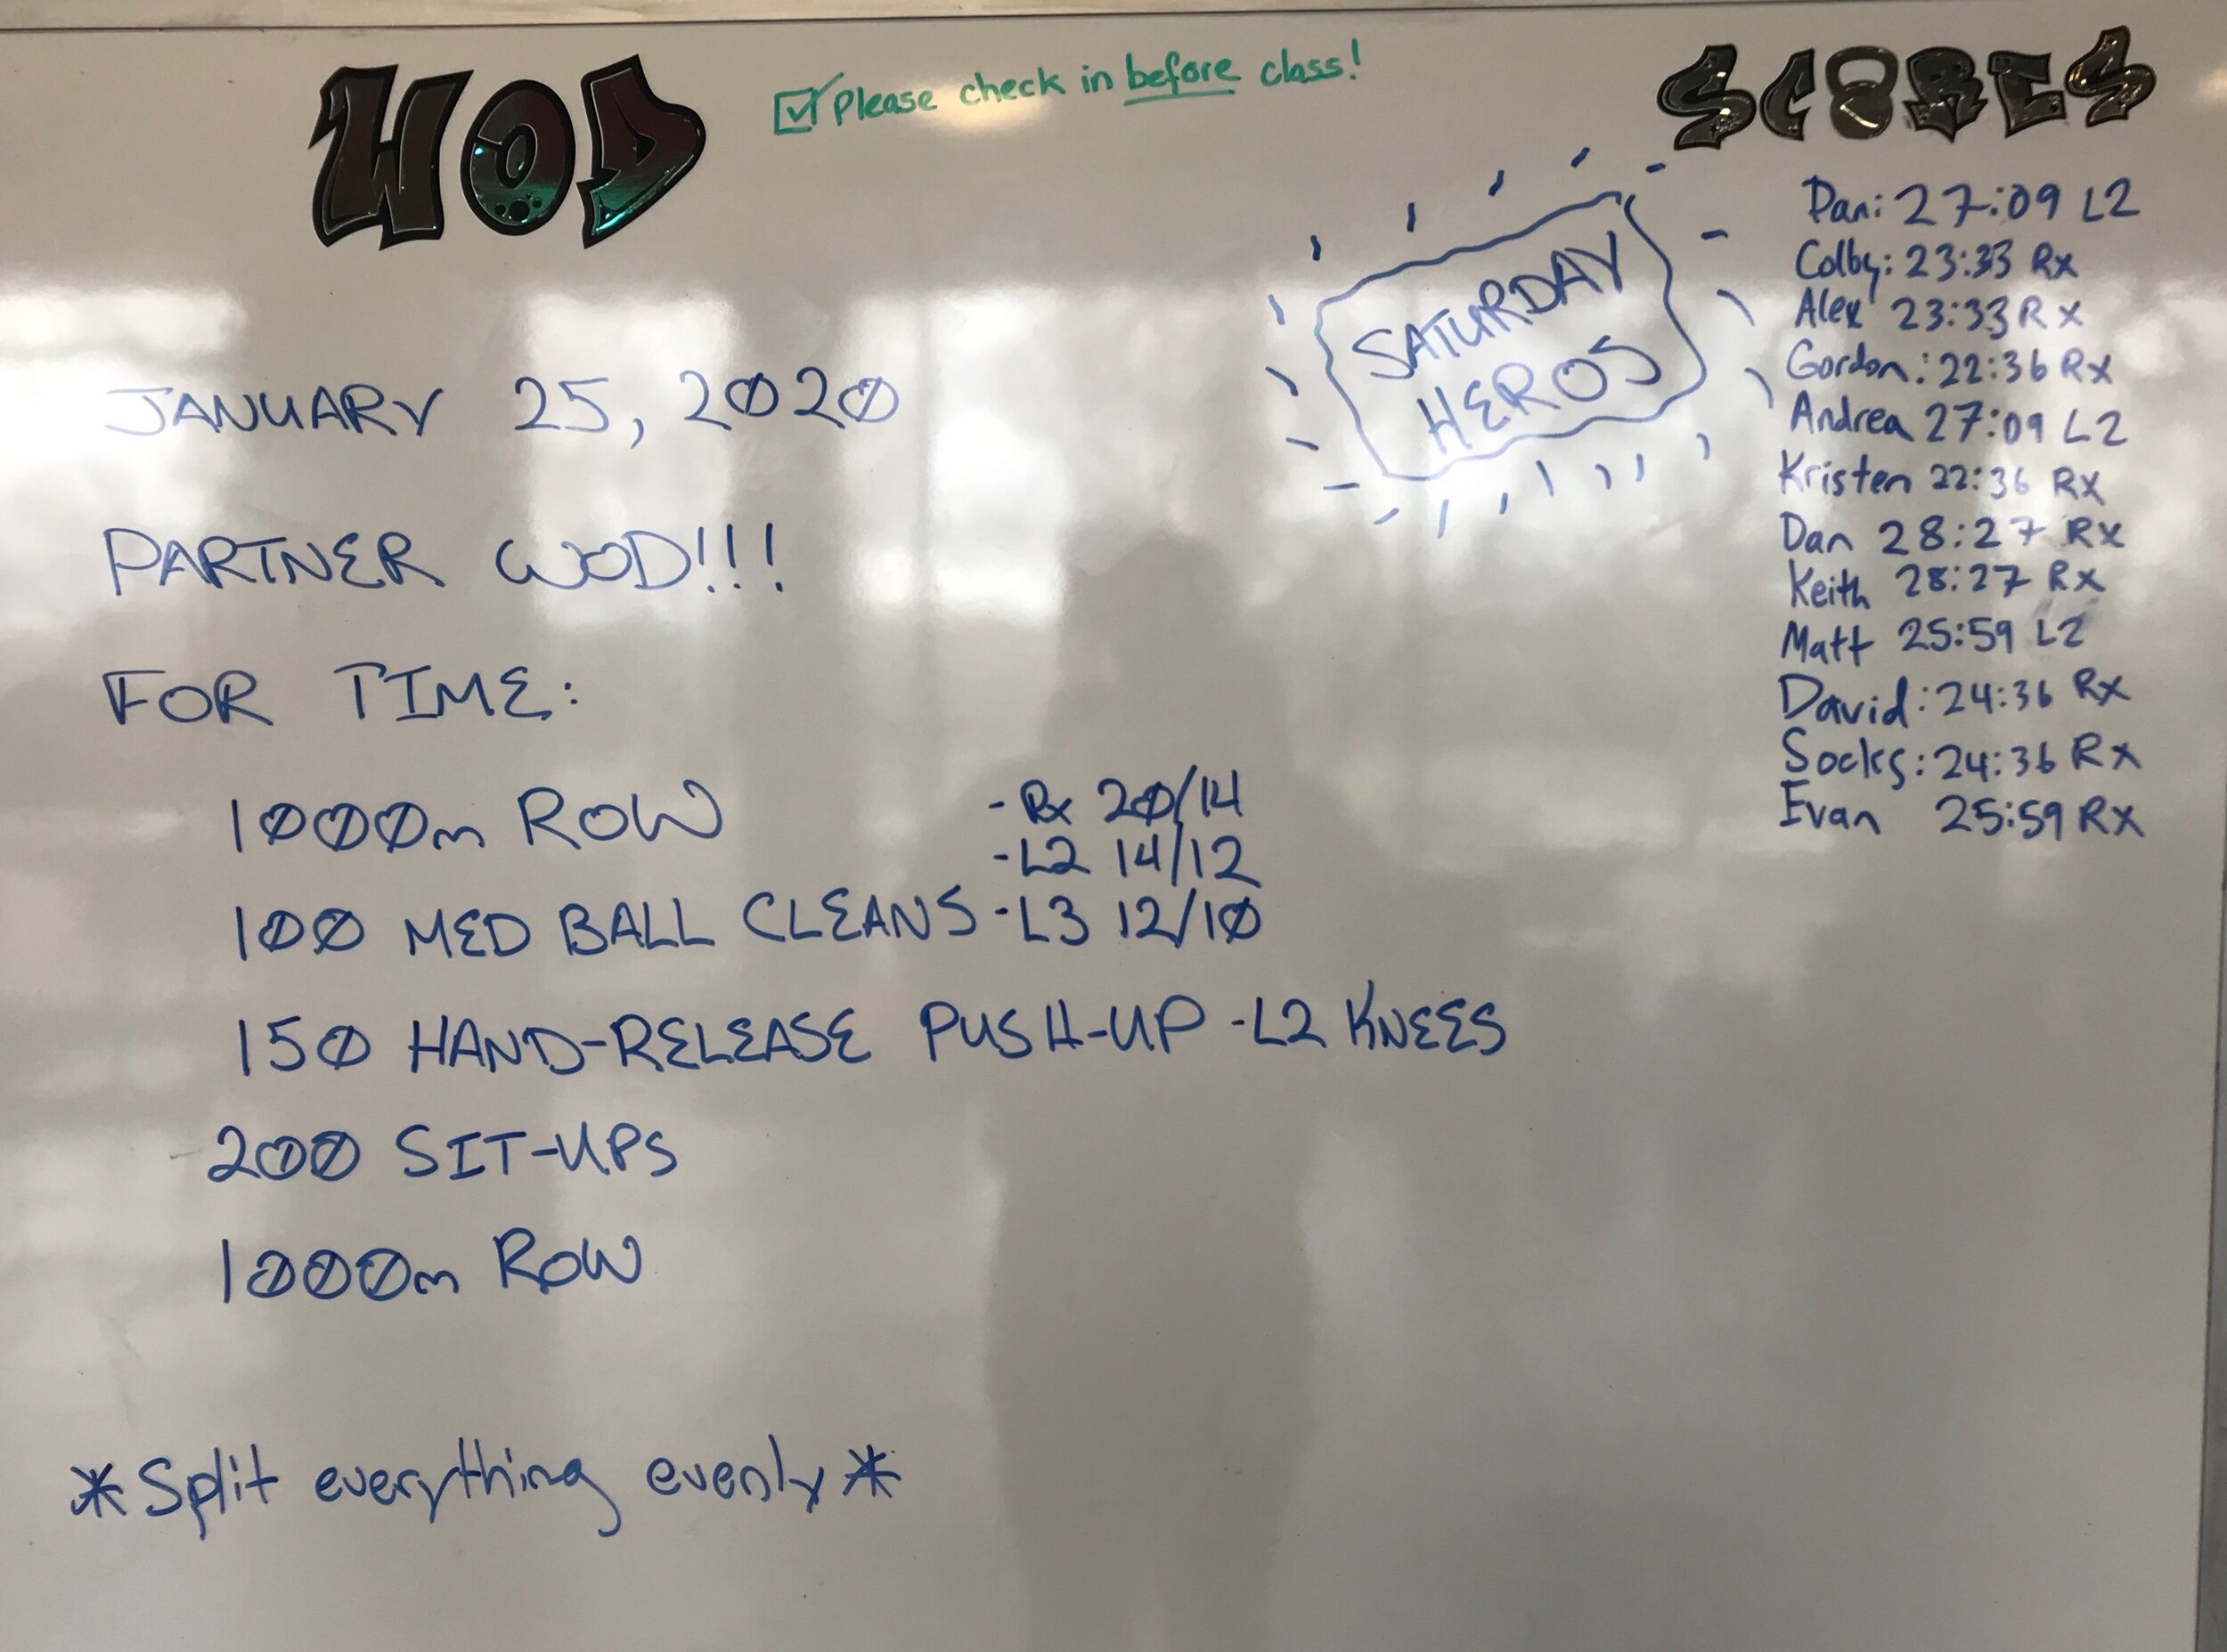 WOD
☑ Please check in before class!
SCORES
SATURDAY
HEROS
JANUARY 25, 2020
PARTNER WOD!!!
FOR TIME:
1000m ROW
- Rx 20/14
- L2 14/12
100 MED BALL CLEANS - L3 12/10
150 HAND-RELEASE PUSH-UP - L2 KNEES
200 SIT-UPS
1000m ROW
*Split everything evenly*
Dan: 27:09 L2
Colby: 23:33 Rx
Alex 23:33 Rx
Gordon: 22:36 Rx
Andrea 27:09 L2
Kristen 22:36 Rx
Dan 28:27 Rx
Keith 28:27 Rx
Matt 25:59 L2
David: 24:36 Rx
Socks: 24:36 Rx
Evan 25:59 Rx